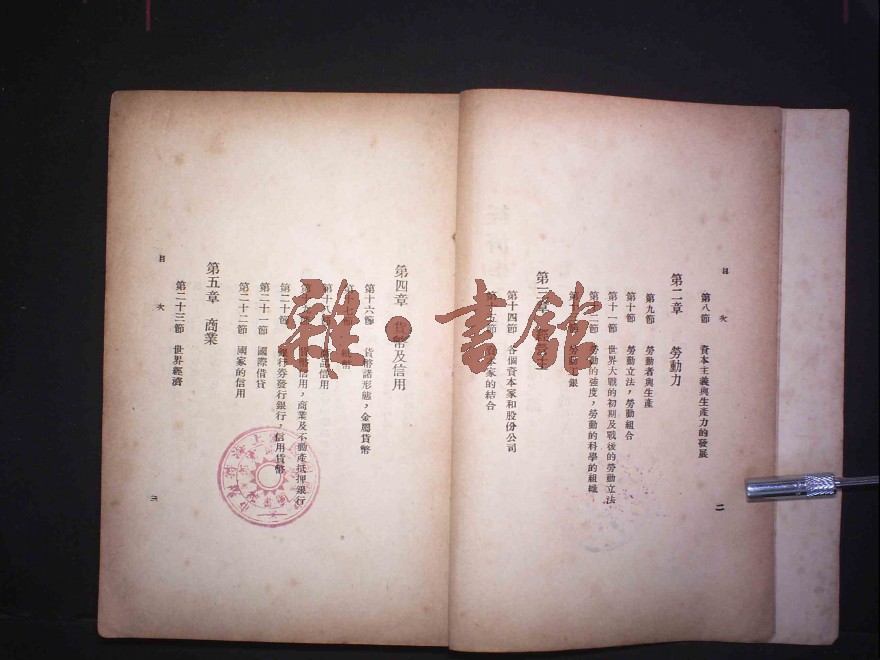 目次
第八節 資本主義與生產力的發展
第二章 勞動力
第九節 勞動者與生產
第十節 勞動立法，勞動組合
第十一節 世界大戰的初期及戰後的勞動立法
第十二節 勞動的強度，勞動的科學的組織
第三章
第十四節 各個資本家和股份公司
第十五節 資本家的結合
二
目次
第四章 貨幣及信用
第十六節 貨幣諸形態，金屬貨幣
信用
信用，商業及不動產抵押銀行
第二十節 銀行券發行銀行，信用貨幣
第二十一節 國際借貸
第二十二節 國家的信用
第五章 商業
第二十三節 世界經濟
三
雜·書館